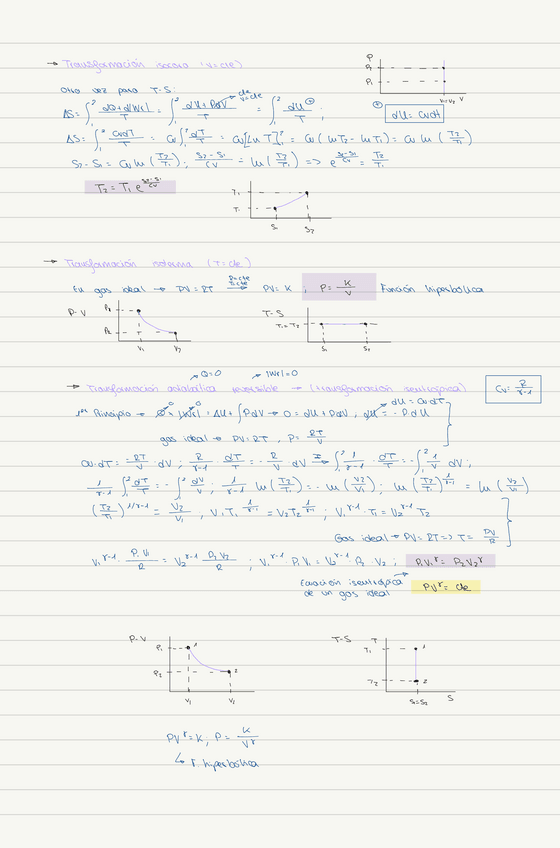 → Transformación isocora (V=cte)
P
P₂
P₁
V₁=V₂ V
Otra vez para T-S:
cte
V=cte
ΔS = ∫₁² (dQ+d|Wr|)/T = ∫₁² (dU+PdV)/T = ∫₁² dU/T ;
dU = CvdT
ΔS = ∫₁² CvdT/T = Cv∫₁² dT/T = Cv[Ln T]₁² = Cv (ln T₂ - ln T₁) = Cv ln (T₂/T₁)
S₂-S₁ = Cv ln (T₂/T₁) ; (S₂-S₁)/Cv = ln (T₂/T₁) => e^((S₂-S₁)/Cv) = T₂/T₁
T₂ = T₁ e^((S₂-S₁)/Cv)
S₁ S₂
→ Transformación isoterma (T=cte)
En gas ideal → PV=RT → PV=K ; P = K/V Función hiperbólica
P-V P₁ P₂ V₁ V₂
T-S T₁=T₂ S₁ S₂
Q=0 |Wr|=0
→ Transformación adiabática reversible → (transformación isentrópica)
Cv = R/(γ-1)
dU = CvdT
1er Principio → Q + |Wr| = ΔU + ∫PdV → 0 = dU + PdV ,
gas ideal → PV=RT , P = RT/V
Cv·dT = -RT/V · dV ; R/(γ-1) · dT/T = -R/V dV => ∫₁² 1/(γ-1) · dT/T = -∫₁² 1/V dV ;
1/(γ-1) ∫₁² dT/T = -∫₁² dV/V ; 1/(γ-1) ln (T₂/T₁) = -ln (V₂/V₁) ; ln (T₂/T₁)^(1/(γ-1)) = ln (V₂/V₁)
(T₂/T₁)^(1/γ-1) = V₂/V₁ ; V₁T₁^(1/(γ-1)) = V₂T₂^(1/(γ-1)) ; V₁^(γ-1)·T₁ = V₂^(γ-1) T₂
Gas ideal → PV=RT => T = PV/R
V₁^(γ-1) P₁V₁/R = V₂^(γ-1) P₂V₂/R ; V₁^(γ-1)·P₁V₁ = V₂^(γ-1)·P₂·V₂ ; P₁V₁^γ = P₂V₂^γ
Ecuación isentrópica
de un gas ideal
PV^γ = cte
P-V P₁ P₂ 1 2 V₁ V₂
T-S T T₁ T₂ 1 2 S₁=S₂ S
PV^γ = K ; P = K/V^γ
↳ f. hiperbólica